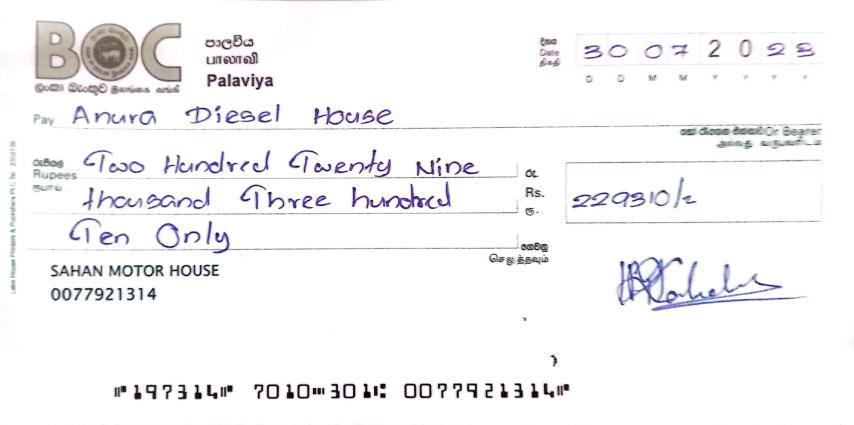 BOC
ලංකා බැංකුව இலங்கை வங்கி
පාලවිය
பாலாவி
Palaviya
දිනය
Date
திகதி
30 07 2023
D D M M Y Y Y Y
Pay Anura Diesel House
හෝ රැගෙන එන්නාට Or Bearer
அல்லது
රුපියල්
Rupees
ரூபாய்
Two Hundred Twenty Nine
thousand Three hundred
Ten Only
රු.
Rs.
ரூ.
229310/=
ගෙවනු
செலுத்தவும்
SAHAN MOTOR HOUSE
0077921314
⑈197314⑈ 7010⑉301⑆ 0077921314⑈